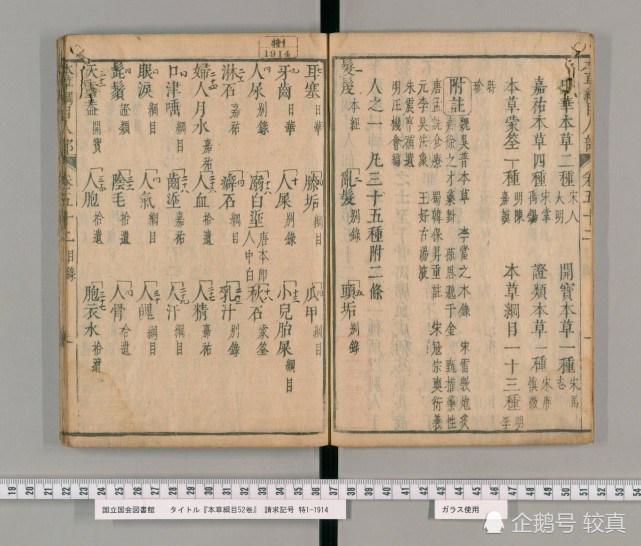 特1
1914
日華本草二種 宋人 大明
開寶本草一種 宋馬志
嘉祐本草四種 宋掌禹錫
證類本草一種 宋唐慎微
本草蒙筌一種 明陳嘉謨
本草綱目一十三種 明李時珍
附註
魏吳普本草 李當之木錄 宋雷斅炮炙
徐之才藥對 孫思邈千金 甄權藥性
唐 蜀韓保昇重註 宋寇宗奭衍義
元李杲法象 王好古湯液
朱震亨補遺
明汪機會編
人之一 凡三十五種附二條
髮髲本經 亂髮別錄 頭垢別錄
耳塞日華 膝垢綱目 瓜甲綱目
牙齒日華 人屎別錄 小兒胎屎綱目
人尿別錄 溺白垽唐本即人中白 秋石蒙筌
淋石嘉祐 癖石綱目 乳汁別錄
婦人月水嘉祐 人血拾遺 人精嘉祐
口津唾綱目 齒垽嘉祐 人汗綱目
眼淚綱目 人氣綱目 人魄綱目
髭鬚證類 陰毛拾遺 人骨拾遺
天靈蓋開寶 人胞拾遺 胞衣水拾遺
本草綱目人部 卷五十二目錄
国立国会図書館 タイトル『本草綱目52巻』 請求記号 特1-1914
ガラス使用
19 20 21 22 23 24 25 26 27 28 29 30 31 32 33 34 35 36 37 38 39 40 41 42 43 44 45 46 47 48 49 50 51 52 53 54
企鹅号 较真